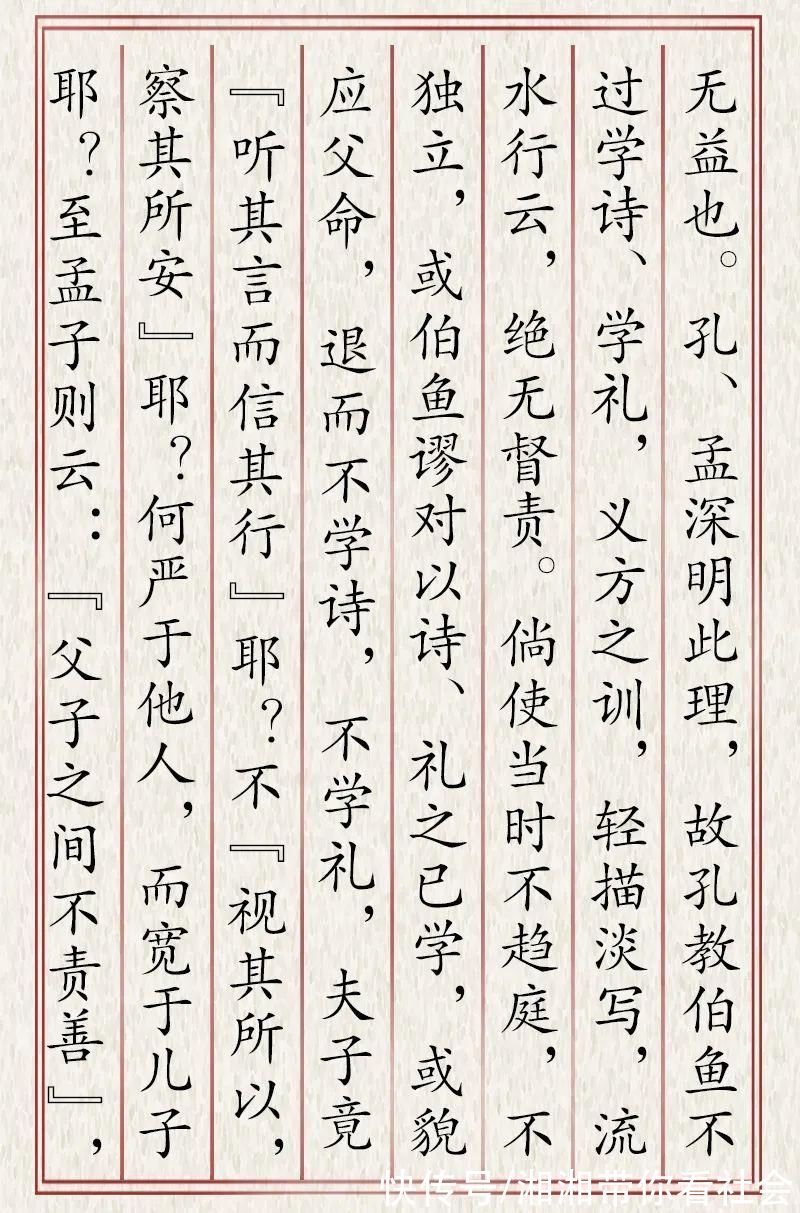 无益也。孔、孟深明此理，故孔教伯鱼不
过学诗、学礼，义方之训，轻描淡写，流
水行云，绝无督责。倘使当时不趋庭，不
独立，或伯鱼谬对以诗、礼之已学，或貌
应父命，退而不学诗，不学礼，夫子竟
『听其言而信其行』耶？不『视其所以，
察其所安』耶？何严于他人，而宽于儿子
耶？至孟子则云：『父子之间不责善』，
快传号/湘湘带你看社会